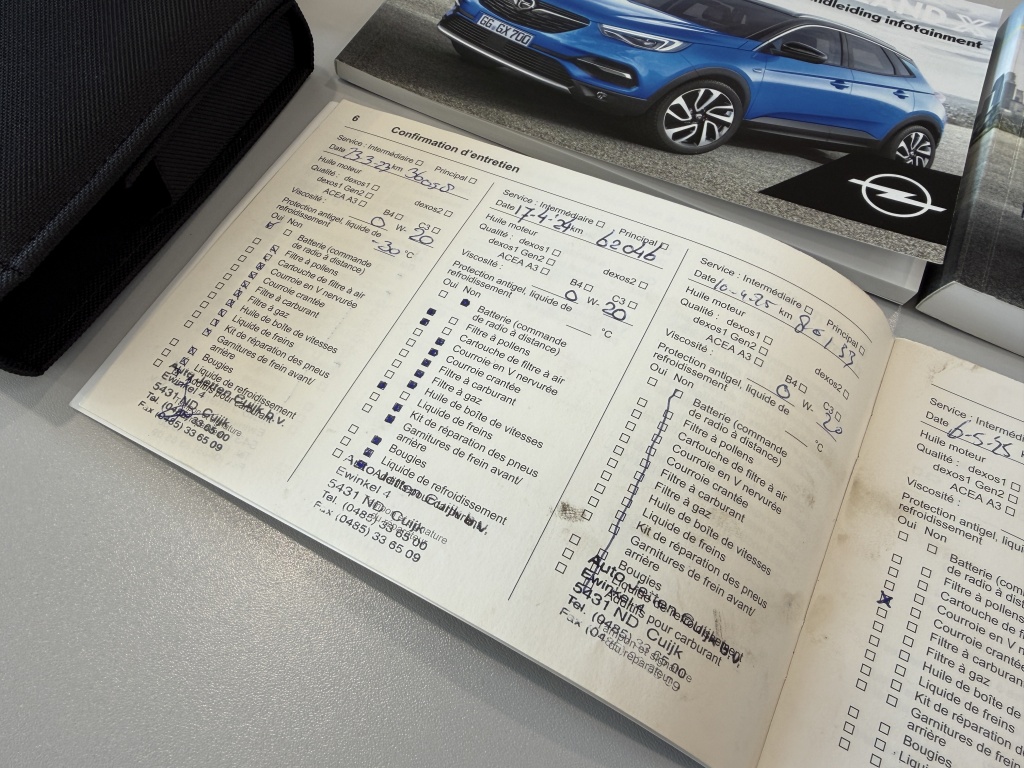 GRANDLAND X
Handleiding infotainment
GG·GX 700
6 Confirmation d'entretien
Service : Intermédiaire Principal
Date 13-3-23 km 36058
Huile moteur
Qualité : dexos1 dexos2
dexos1 Gen2
ACEA A3 B4 C3
Viscosité : 0 W- 20
Protection antigel, liquide de
refroidissement -30 °C
Oui Non
Batterie (commande
de radio à distance)
Filtre à pollens
Cartouche de filtre à air
Courroie en V nervurée
Courroie crantée
Filtre à carburant
Filtre à gaz
Huile de boîte de vitesses
Liquide de freins
Kit de réparation des pneus
Garnitures de frein avant/
arrière
Bougies
Liquide de refroidissement
Auto Jetten Cuijk B.V.
Ewinkel 4
5431 ND Cuijk
Tel. (0485) 33 65 00
Fax (0485) 33 65 09
Service : Intermédiaire Principal
Date 17-4-24 km 62046
Huile moteur
Qualité : dexos1 dexos2
dexos1 Gen2
ACEA A3 B4 C3
Viscosité : 0 W- 20
Protection antigel, liquide de
refroidissement °C
Oui Non
Batterie (commande
de radio à distance)
Filtre à pollens
Cartouche de filtre à air
Courroie en V nervurée
Courroie crantée
Filtre à carburant
Filtre à gaz
Huile de boîte de vitesses
Liquide de freins
Kit de réparation des pneus
Garnitures de frein avant/
arrière
Bougies
Liquide de refroidissement
Auto Jetten Cuijk B.V.
Ewinkel 4
5431 ND Cuijk
Tel. (0485) 33 65 00
Fax (0485) 33 65 09
Service : Intermédiaire Principal
Date 10-4-25 km
Huile moteur
Qualité : dexos1 dexos2
dexos1 Gen2
ACEA A3 B4 C3
Viscosité : 0 W- 20
Protection antigel, liquide de
refroidissement °C
Oui Non
Batterie (commande
de radio à distance)
Filtre à pollens
Cartouche de filtre à air
Courroie en V nervurée
Courroie crantée
Filtre à carburant
Filtre à gaz
Huile de boîte de vitesses
Liquide de freins
Kit de réparation des pneus
Garnitures de frein avant/
arrière
Bougies
Liquide de refroidissement
Additifs pour carburant
Auto Jetten Cuijk B.V.
Ewinkel 4
5431 ND Cuijk
Tel. (0485) 33 65 00
Fax (0485) 33 65 09
Tampon et signature
du réparateur
Service : Intermédi
Date 6-5-25
Huile moteur
Qualité : dexos1
dexos1 Gen2
ACEA A3
Viscosité :
Protection antigel, liqui
refroidissement
Oui Non
Batterie (com
de radio à dis
Filtre à pollens
Cartouche de
Courroie en V n
Courroie cranté
Filtre à carburan
Filtre à gaz
Huile de boîte de
Liquide de freins
Kit de réparation d
Garnitures de frein
arrière
Bougies
Liqui